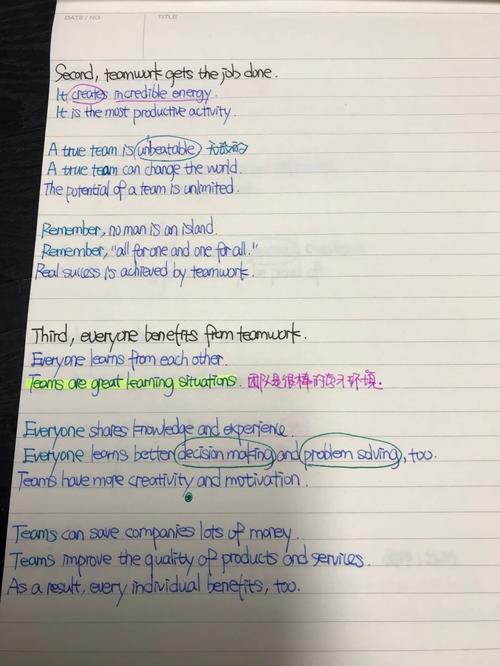 DATE / NO.
TITLE
Second, teamwork gets the job done.
It creates incredible energy.
It is the most productive activity.
A true team is unbeatable 无敌的
A true team can change the world.
The potential of a team is unlimited.
Remember, no man is an island.
Remember, "all for one and one for all."
Real success is achieved by teamwork.
Third, everyone benefits from teamwork.
Everyone learns from each other.
Teams are great learning situations. 团队是很棒的学习环境.
Everyone shares knowledge and experience.
Everyone learns better decision making and problem solving, too.
Teams have more creativity and motivation.
Teams can save companies lots of money.
Teams improve the quality of products and services.
As a result, every individual benefits, too.